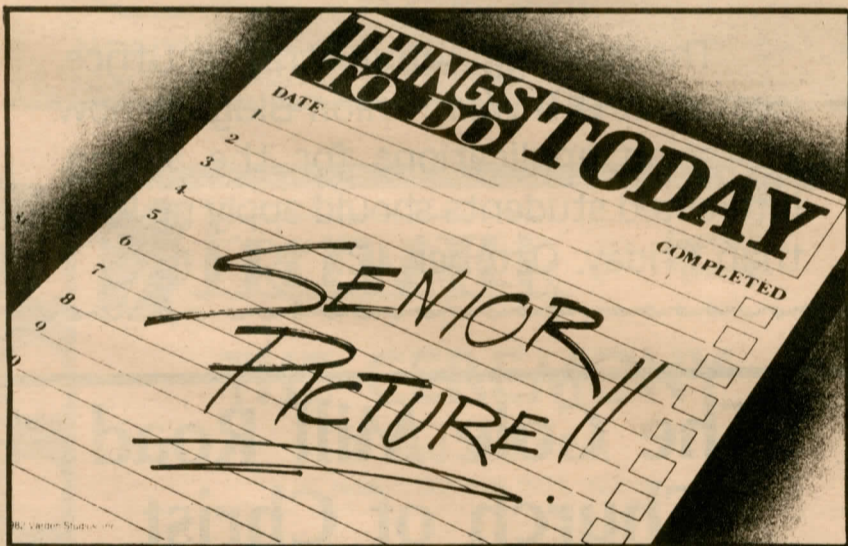 THINGS
TO DO
TODAY
DATE
COMPLETED
1
2
3
4
5
6
7
8
9
SENIOR
PICTURE!!
Varden Studios, Inc.